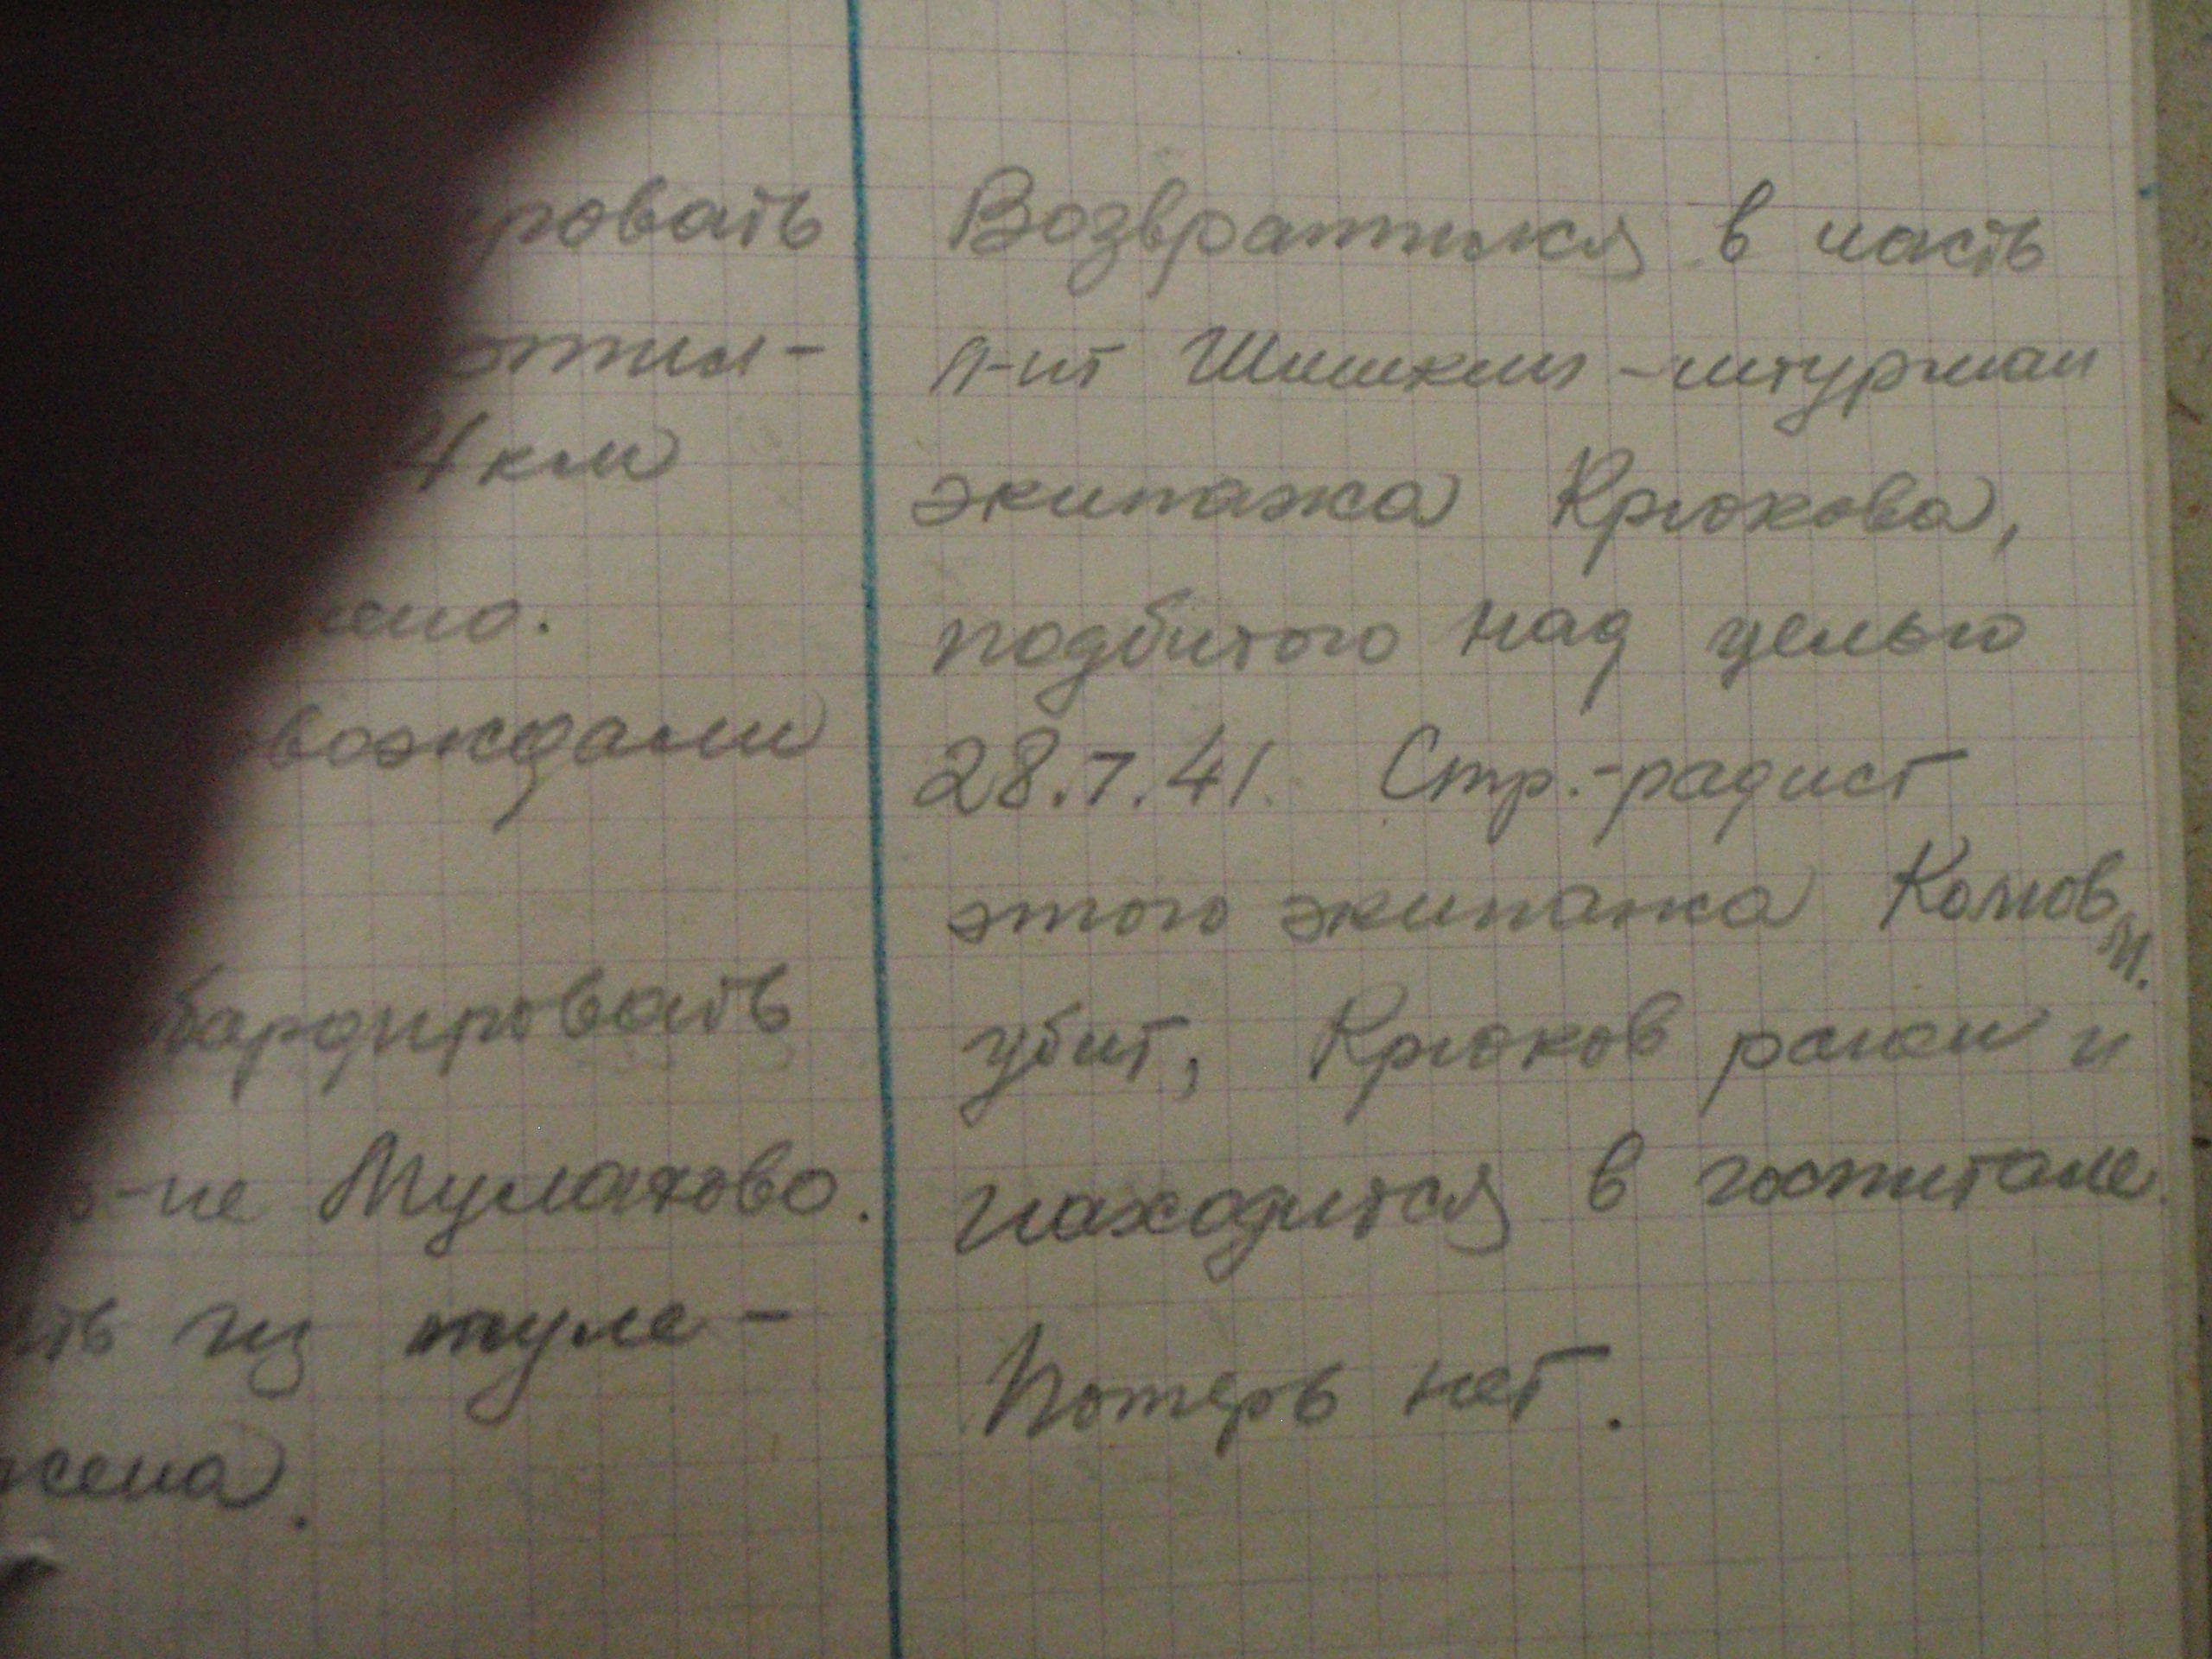 ровать
4 км
ено.
вождали
бардировать
р-не Мулахово.
ть из пуле-
жена.
Возвратился в часть
л-нт Шишкин - штурман
экипажа Крюкова,
подбитого над целью
28.7.41. Стр.-радист
этого экипажа
убит, Крюков ранен и
находится в госпитале.
Потерь нет.